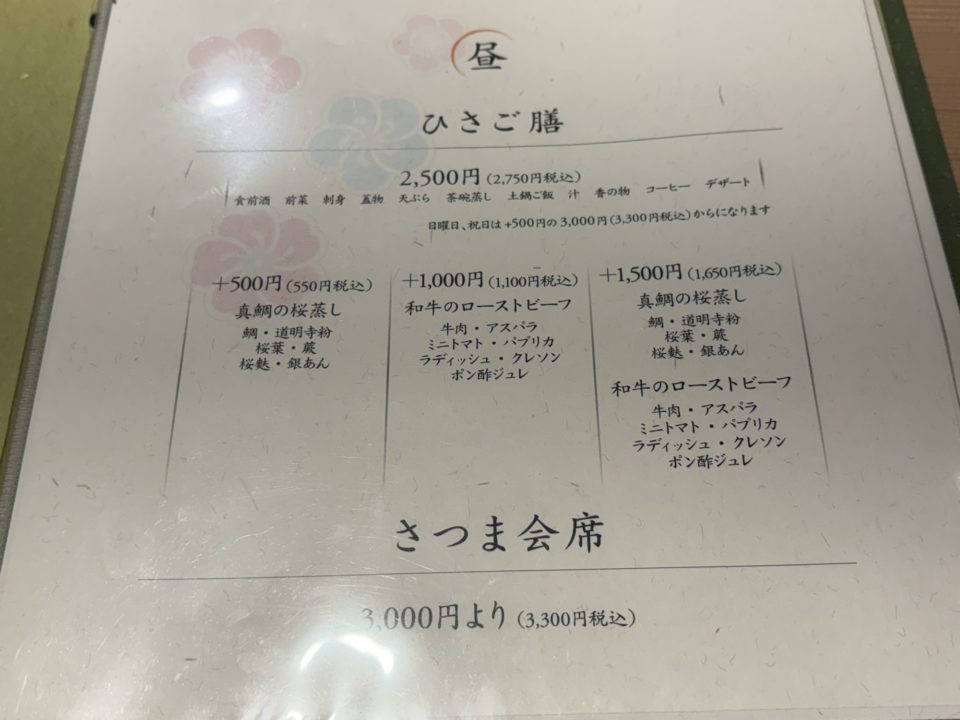 昼
ひさご膳
2,500円(2,750円税込)
食前酒 前菜 刺身 蓋物 天ぷら 茶碗蒸し 土鍋ご飯 汁 香の物 コーヒー デザート
日曜日、祝日は+500円の3,000円(3,300円税込)からになります
+500円(550円税込)
真鯛の桜蒸し
鯛・道明寺粉
桜葉・蕨
桜麩・銀あん
+1,000円(1,100円税込)
和牛のローストビーフ
牛肉・アスパラ
ミニトマト・パプリカ
ラディッシュ・クレソン
ポン酢ジュレ
+1,500円(1,650円税込)
真鯛の桜蒸し
鯛・道明寺粉
桜葉・蕨
桜麩・銀あん
和牛のローストビーフ
牛肉・アスパラ
ミニトマト・パプリカ
ラディッシュ・クレソン
ポン酢ジュレ
さつま会席
3,000円より(3,300円税込)